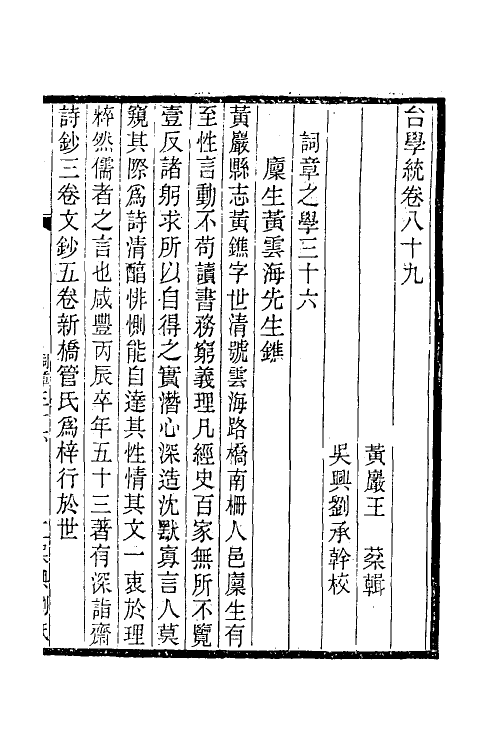 台學統卷八十九
黃巖王　棻輯
吳興劉承幹校
詞章之學三十六
廩生黃雲海先生鐎
黃巖縣志黃鐎字世清號雲海路橋南柵人邑廩生有
至性言動不苟讀書務窮義理凡經史百家無所不覽
壹反諸躬求所以自得之實潛心深造沈默寡言人莫
窺其際爲詩清醖悱惻能自達其性情其文一衷於理
粹然儒者之言也咸豐丙辰卒年五十三著有深詣齋
詩鈔三卷文鈔五卷新橋管氏爲梓行於世